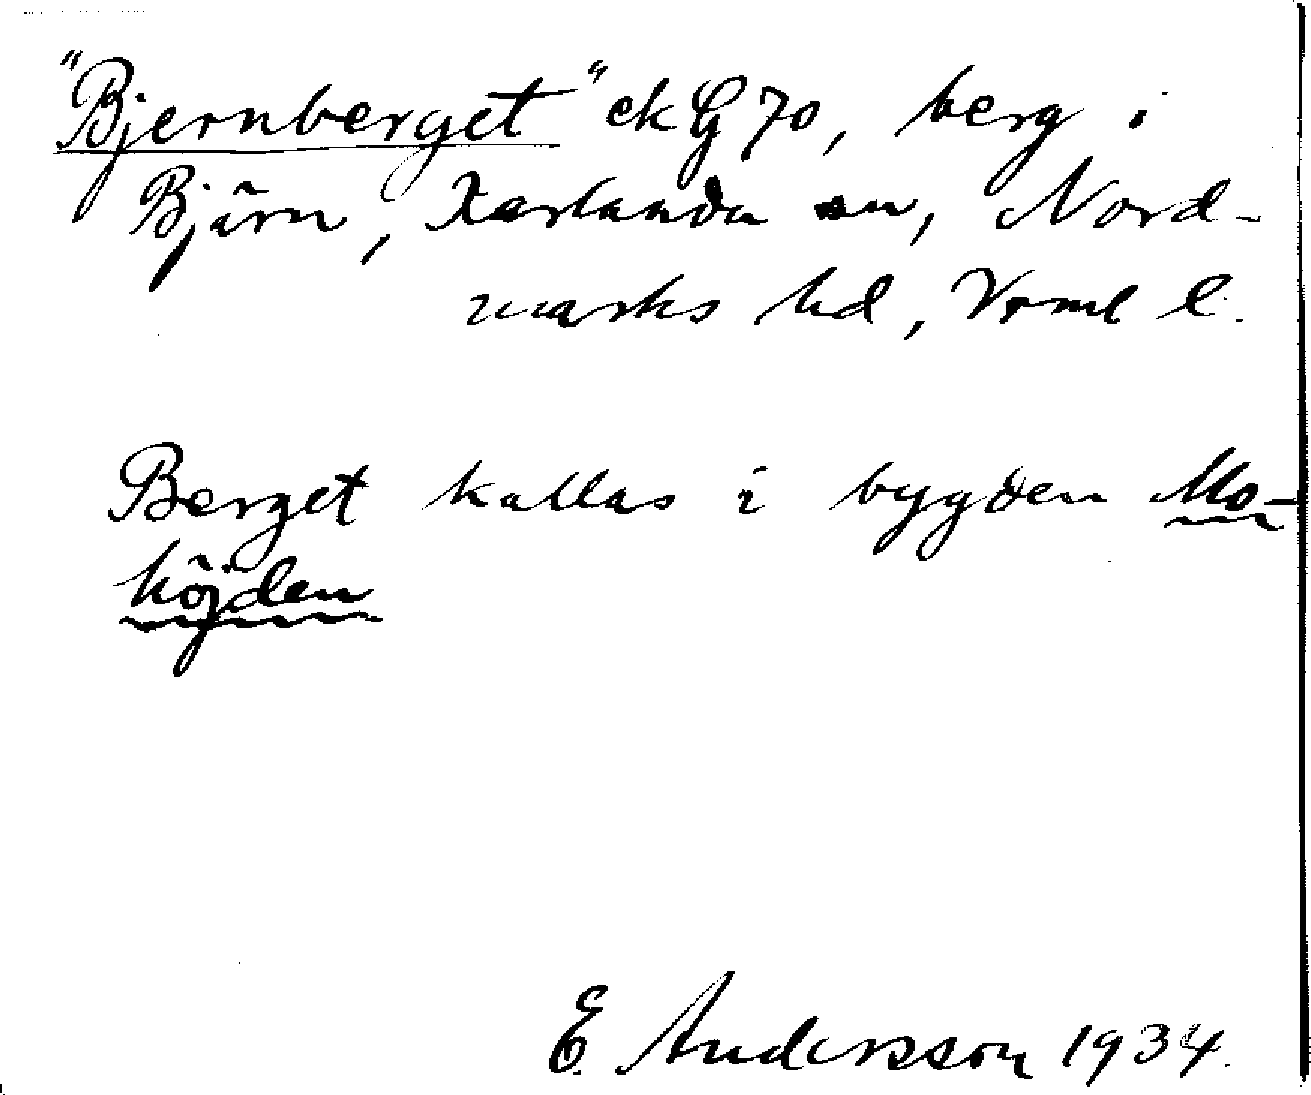 "Bjernberget" ek G 70, berg i
Björn, Karlanda sn, Nord-
marks hd, Vrml l.
Berget kallas i bygden Mo-
höjden
E. Andersson 1934.